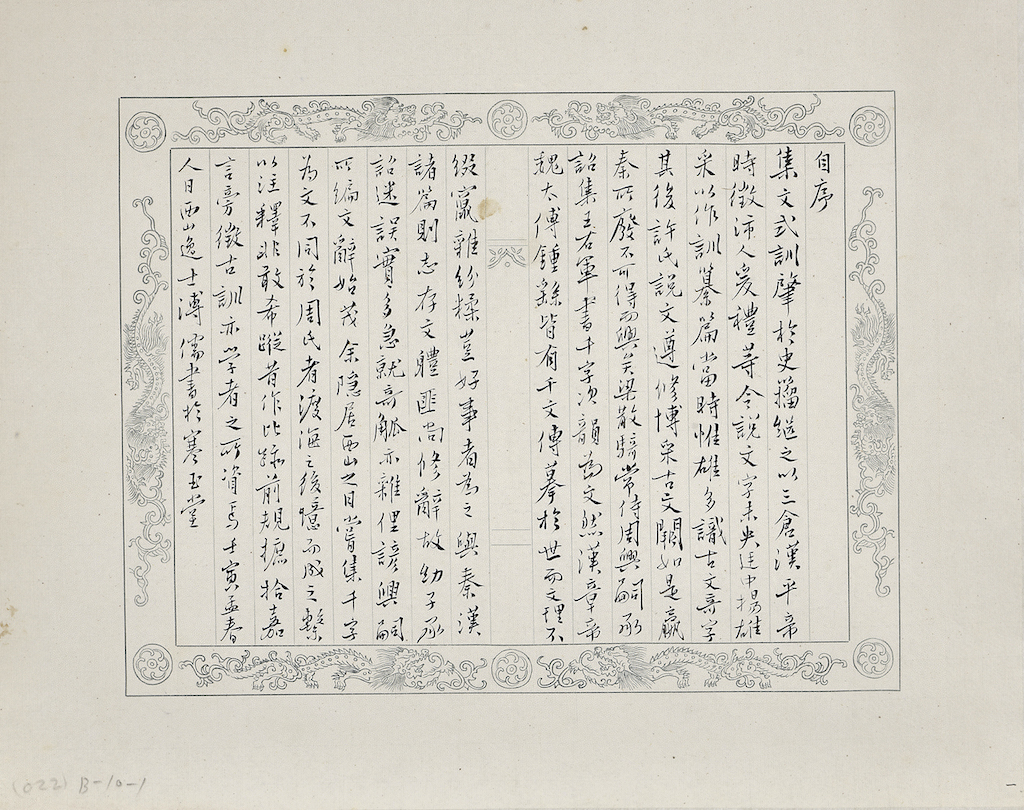 自序
集文式訓肇於史籀繼之以三倉漢平帝
時徵沛人爰禮等令說文字未央廷中揚雄
采以作訓纂篇當時惟雄多識古文奇字
其後許氏說文遵修博采古文闕如是嬴
秦所廢不可得而興矣梁散騎常侍周興嗣承
詔集王右軍書千字次韻為文然漢章帝
魏太傅鍾繇皆有千文傳摹於世而文理不
綴竄雜紛糅豈好事者為之與秦漢
諸篇則志存文體匪尚修辭故幼子承
詔迷誤實多急就奇觚亦雜俚諺興嗣
所編文辭始茂余隱居西山之日嘗集千字
為文不同於周氏者渡海之後憶而成之繫
以注釋非敢希蹤昔作比跡前規摭拾嘉
言旁徵古訓亦學者之所資焉壬寅孟春
人日西山逸士溥儒書於寒玉堂
(022) B-10-1
一